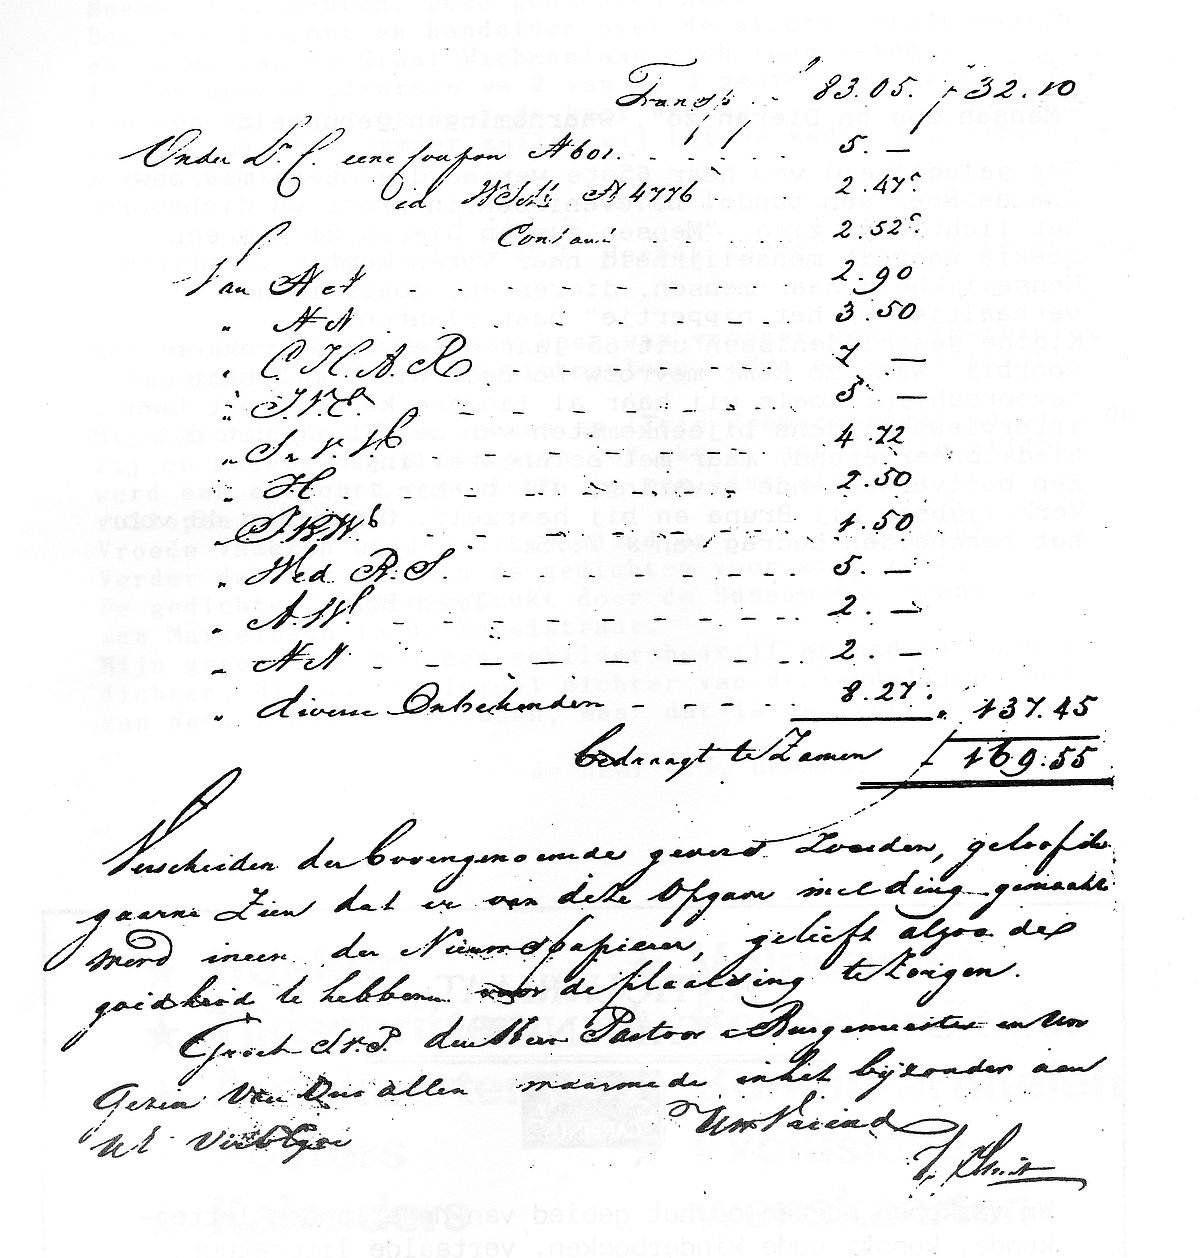 Transp. . . 83.05. f 32.10
Onder Dr. C. eene Coupon A 601. . . . . . 5. —
id WSch: A 4776 . . . 2.47⁵
Contant . . . . . 2.52⁵
Van A et . . . . . 2.90
" N N . . . . . 3.50
" C. H. A. R . . . . . 7 —
" J. V. E. . . . . . 5 —
" S. V. W . . . . . 4.72
" H . . . . . 2.50
" . . . . . 1.50
" Wed R. S. . . . . . 5. —
" A. W. . . . . . 2. —
" N N . . . . . 2. —
" diverse Onbekenden - - - - - 8.27⁵. " 137.45
bedraagt te Zamen f 169.55
Verscheiden der bovengenoemde gevers Zouden, geloof ik
gaarne Zien dat er van deze Opgave melding gemaakt
werd in een der Nieuwspapieren, gelieft alzoo de
goedheid te hebben voor de plaatsing te Zorgen.
Groet S.V.P. den Heer Pastoor & Burgemeester en Uw
Gezin Van Ons allen waarmede in het bijzonder aan
UE
Uw Vriend